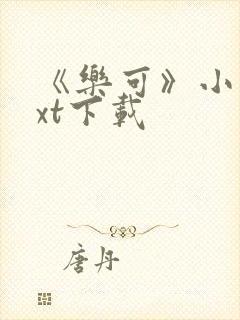 《樂可》小
xt下載
唐丹